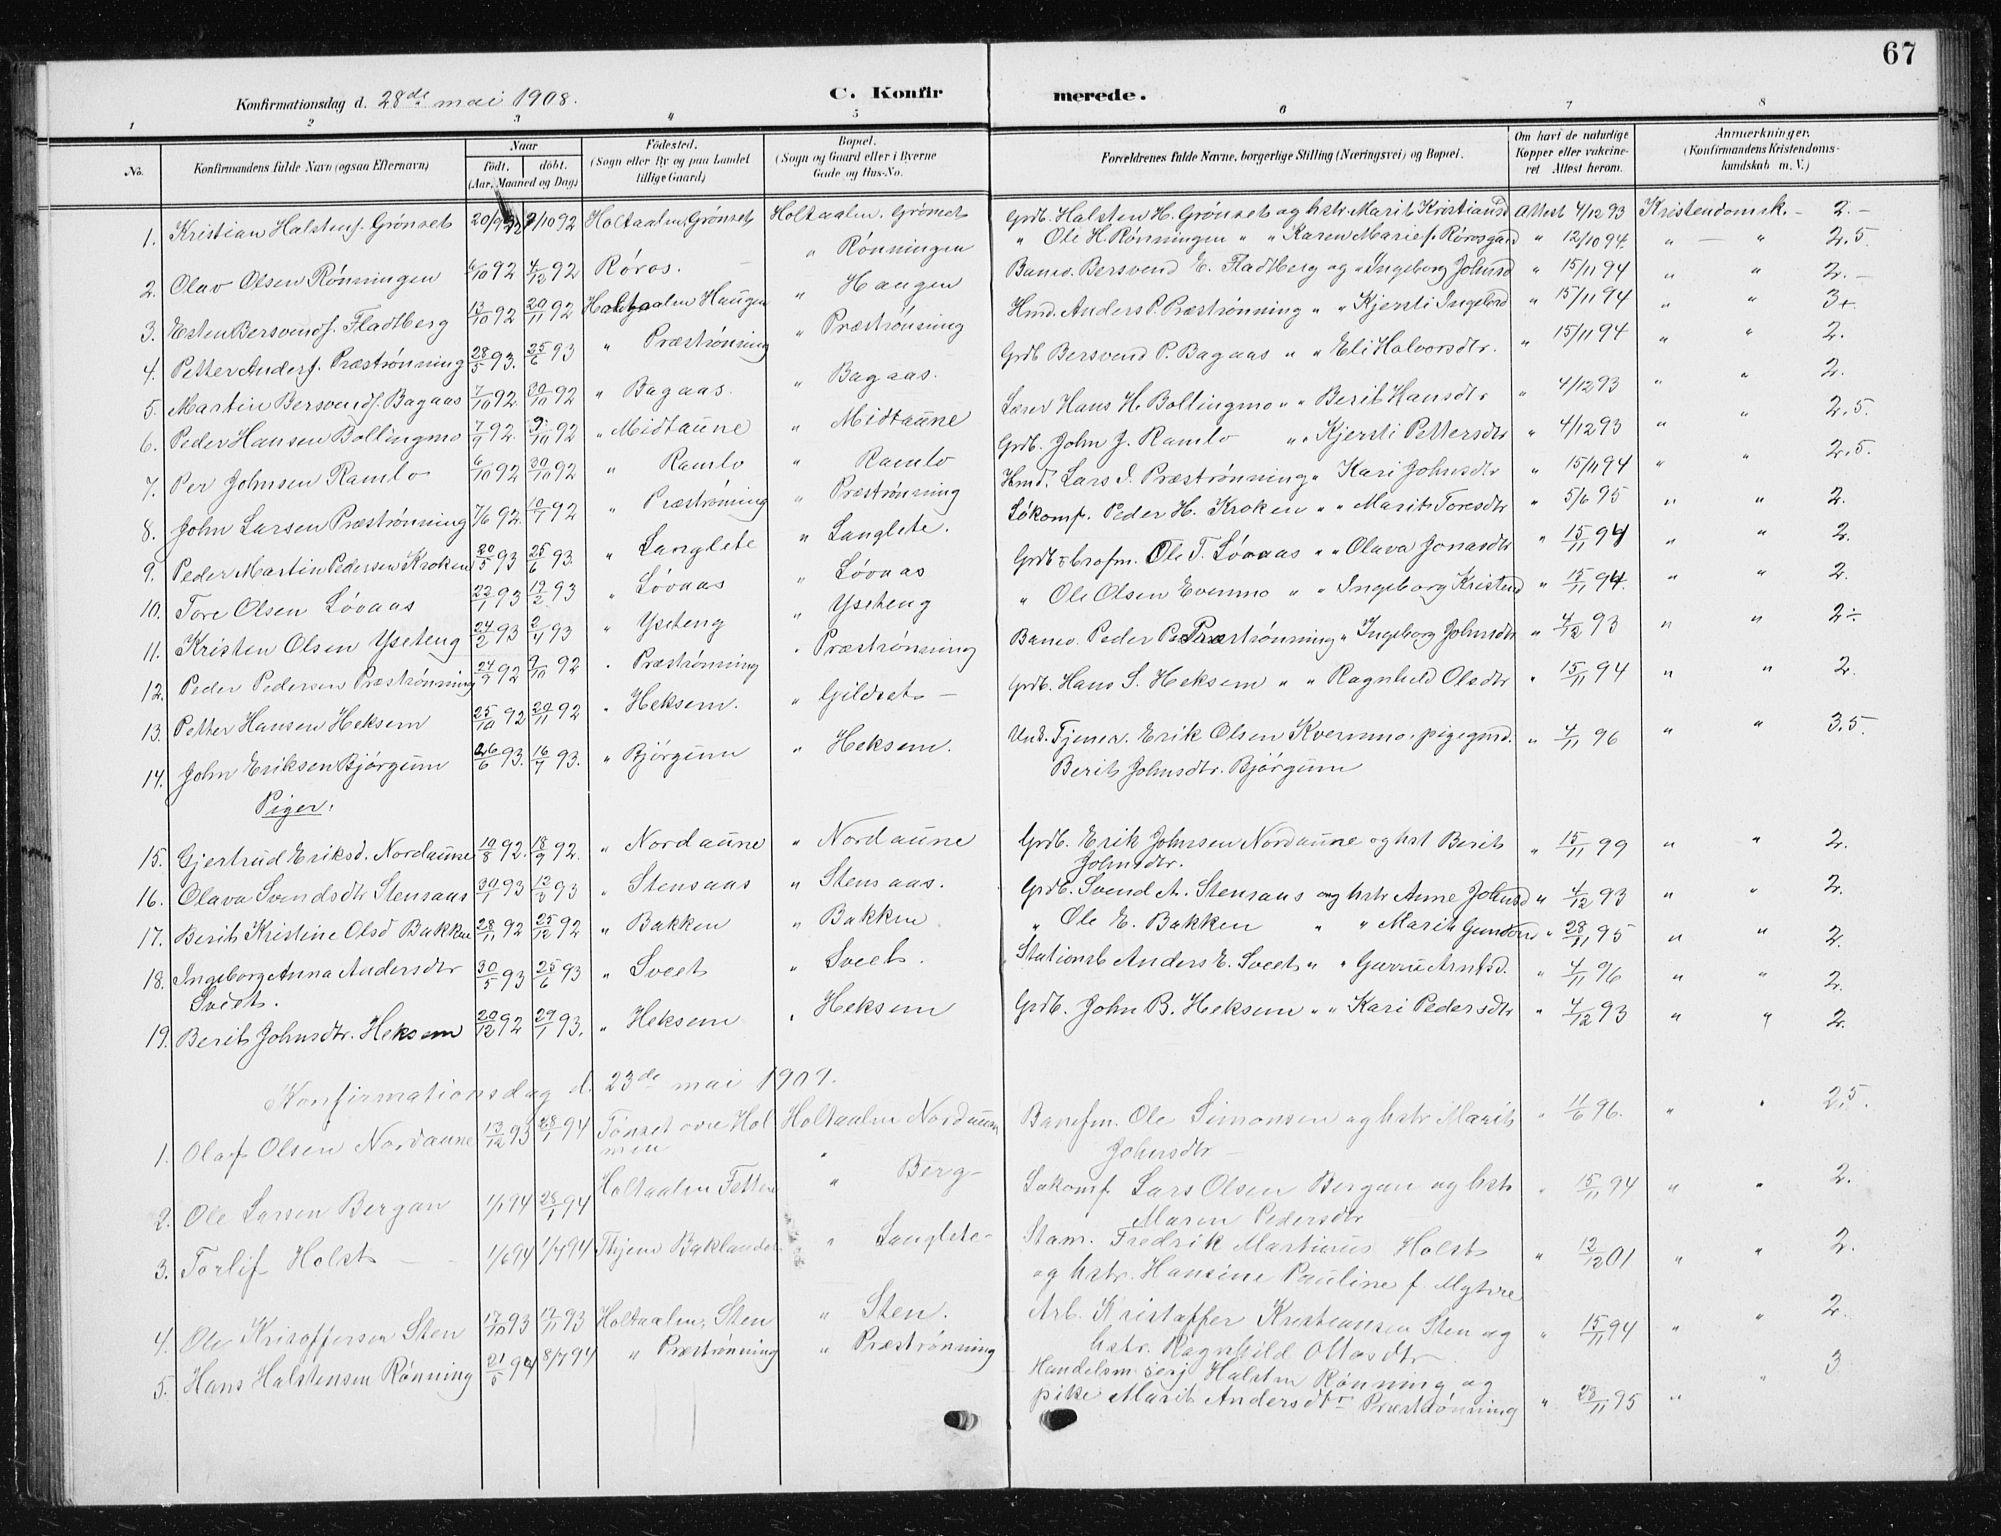 67
Konfirmationsdag d. 28de mai 1908. C. Konfirmerede.
1 2 3 4 5 6 7 8
No. Konfirmandens fulde Navn (ogsaa Efternavn) Naar født. døbt. (Aar, Maaned og Dag) Fødested. (Sogn eller By og paa Landet tillige Gaard) Bopæl. (Sogn og Gaard eller i Byerne Gade og Hus-No. Forældrenes fulde Navne, borgerlige Stilling (Næringsvei) og Bopæl. Om havt de naturlige Kopper eller vakcineret Attest herom. Anmerkninger. (Konfirmandens Kristendomskundskab m. V.)
1. Kristian Halstens. Grønset 20/9 92 9/10 92 Holtaalen, Grønset Holtaalen. Grønset Grdb. Halsten H. Grønset og hstr. Marit Kristiansd Attest 4/12 93 Kristendomsk. - 2.-
2. Olav Olsen Rønningen 6/10 92 4/12 92 Røros. - " Rønningen " Ole H. Rønningen " " Karen Marie f. Rørosgaard " 12/10 94. " - " 2.5.
3. Esten Bersvends. Fladtberg 13/10 92 20/11 92 Holtaalen Haugen " Haugen Banev. Bersvend E. Fladtberg og " Ingeborg Johnsd " 15/11 94 " " 2.-
4. Petter Anders. Præstrønning 28/5 93. 25/6 93 " Præstrønning " Præstrønning Hmd. Anders P. Præstrønning " " Kjersti Ingebrd " 15/11 94 " " 3+
5. Martin Bersvends. Bagaas 7/10 92. 30/10 92 " Bagaas. " Bagaas. Grdb Bersvend P. Bagaas " " Eli Halvorsdtr. " 15/11 94 " " 2.
6. Peder Hansen Bollingmo 7/9 92. 9/10 92 " Midtaune " Midtaune Lærer Hans H. Bollingmo " " Berit Hansdtr " 4/12 93 " " 2.
7. Per Johnsen Ramlo 6/10 92 30/10 92 " Ramlo " Ramlo Grdb. John J. Ramlo " " Kjersti Pettersdtr " 4/12 93 " " 2.5.
8. John Larsen Præstrønning 7/6 92. 10/7 92 " Præstrønning " Præstrønning Hmd. Lars J. Præstrønning " Kari Johnsdtr " 15/11 94 " " 2.5.
9. Peder Martin Pedersen Kroken 20/5 93 25/6 93. " Langlete " Langlete. Løkomf. Peder H. Kroken " " Marit Toresdtr " 5/6 95 " " 2.
10. Tore Olsen Løvaas 22/1 93 12/2 93 " Løvaas " Løvaas Grdb. Brofm. Ole T. Løvaas " " Olava Jonasdtr " 15/11 94 " " 2.
11. Kristen Olsen Yseteng 24/2 93 2/4 93 " Yseteng " Yseteng " Ole Olsen Evenmo " " Ingeborg Kristend " 15/11 94. " " 2.
12. Peder Pedersen Præstrønning 24/9 92 9/10 92 " Præstrønning " Præstrønning Banev. Peder P. Præstrønning " Ingeborg Johnsdtr " 4/12 93 " " 2÷
13. Petter Hansen Heksem 25/10 92 20/11 92 " Heksem. " Gildset - Grdb. Hans S. Heksem " " Ragnhild Olsdtr " 15/11 94 " " 2.
14. John Eriksen Bjørgum 26/6 93. 16/7 93. " Bjørgum " Heksem. Unk. Tjener. Erik Olsen Kvernmo, pigegmd. " 4/11 96 " " 3.5.
Berit Johnsdtr. Bjørgum
Piger.
15. Gjertrud Eriksd. Nordaune 19/8 92. 18/9 92. " Nordaune " Nordaune Grdb. Erik Johnsen Nordaune og hst Berit " 15/11 99 " " 2.
Johnsdtr.
16. Olava Svendsdtr Stensaas 30/1 93 12/3 93 " Stensaas " Stensaas. Grdb. Svend A. Stensaas og hstr Anne Johnsd " 4/12 93 " " 2.
17. Berit Kristine Olsd Bakken 28/11 92 25/12 92 " Bakken " Bakken " Ole E. Bakken " " Marit " 28/11 95 " " 2.
18. Ingeborg Anna Andersdtr 30/5 93 25/6 93 " Sveet " Sveet. Stationsb Anders E. Sveet " " Guru Arntsd. " 4/11 96 " " 2.
Sveet.
19. Berit Johnsdtr. Heksem 20/12 92 29/1 93. " Heksem " Heksem Grdb. John B. Heksem " " Kari Pedersdtr " 4/12 93 " " 2.
Konfirmationsdag d. 23de mai 1909.
1. Olaf Olsen Nordaune 13/12 93 28/1 94 Tønset øvre Hol Holtaalen Nordaune Banefm. Ole Simonsen og hstr Marit " 11/6 96. " " 2.5.
men Johnsdtr -
2. Ole Larsen Bergan 1/1 94 28/1 94 Holtaalen Fetten " Berg - Lokomf. Lars Olsen Bergan og hstr " 15/11 94 " " 2.
Maren Pedersdtr
3. Torlif Holst - 1/6 94 1/7 94 Thjem Baklandet " Langlete - Stam. Fredrik Martinus Holst " 12/12 01 " " 2.
og hstr. Hansine Pauline f. Myhre
4. Ole Kristoffersen Sten 17/10 93 12/11 93 Holtaalen, Sten " Sten. Arb. Kristoffer Kristiansen Sten og " 15/11 94 " " 2.
hstr. Ragnhild Ottosdtr
5. Hans Halstensen Rønning 21/5 94 8/7 94 " Præstrønning " Præstrønning Handelsm serj Halsten Rønning og " 28/11 95 " " 3
pike Marit Andersdtr Præstrønning